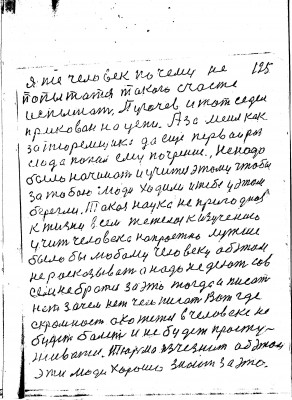 125
я те человек почему не
попытатся такого счастя
испытат, Пугочев и тот седел
прикован на цепи. А за меня как
за тюремщика да еще первай раз
сюда попал ему потрешн., Ненадо
было начинат и учит этому чтобы
за табою люди ходили и тебя у этом
берегли. Такая наука не пригодная
к жизни всем тяжела к изучению
учит человека напроетив лутше
было бы любому человеку об этом
не росказыват а надо не делат сов
сем не братся за это тогда и писат
нет зачем нет чем писат Вот где
скромност окажется в человека не
будит балет и не будит просту-
живатся. Тюрма изчезнит об этом
эти люди хорошо знают за это.